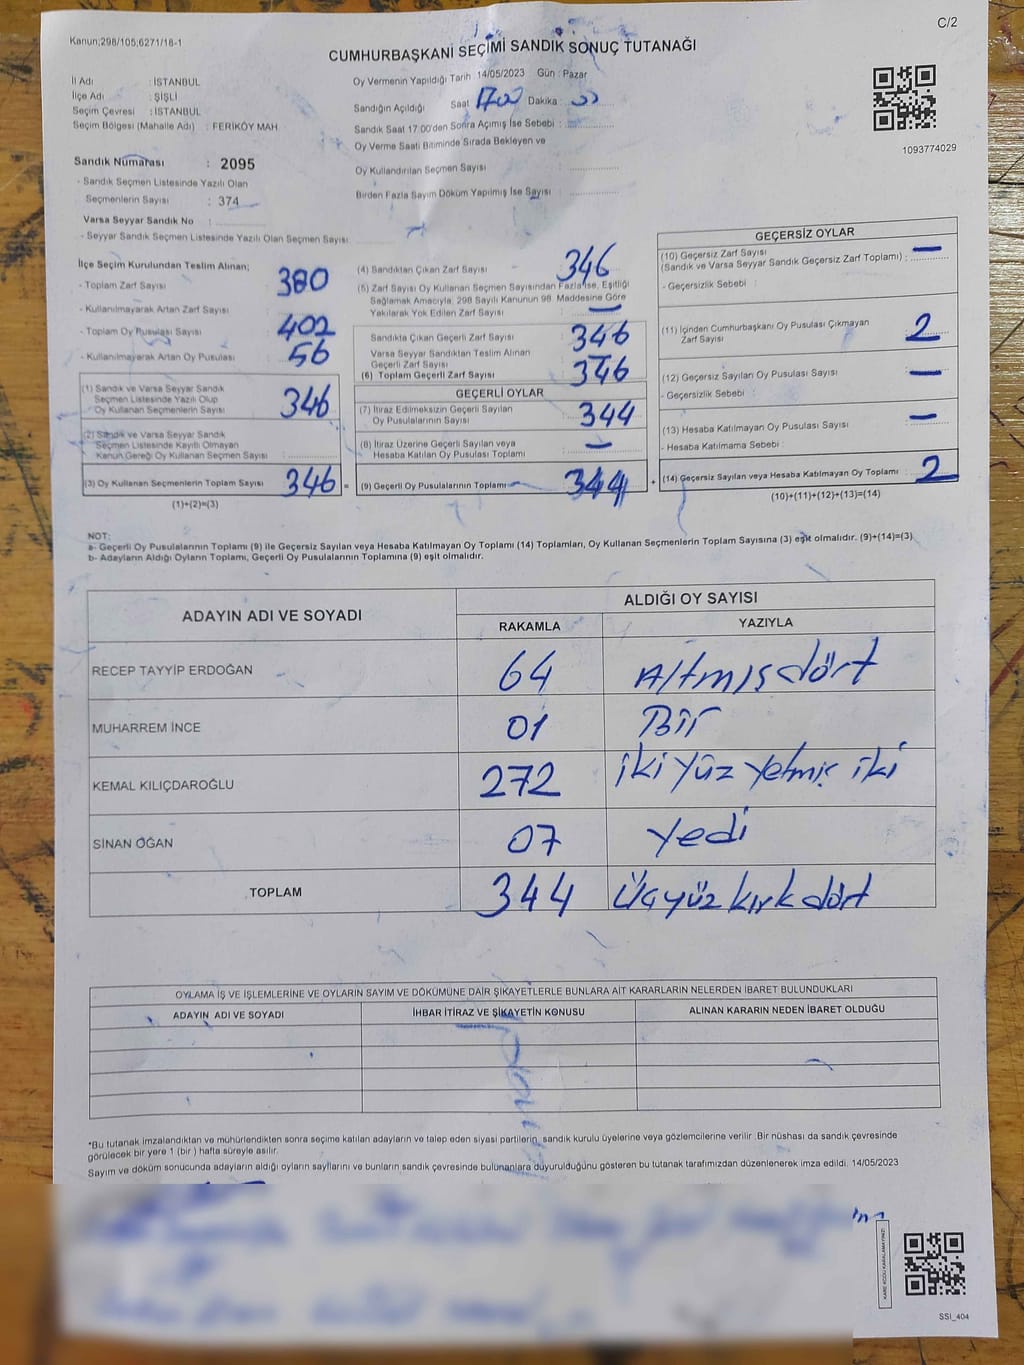 C/2
Kanun;298/105;6271/18-1
CUMHURBAŞKANI SEÇİMİ SANDIK SONUÇ TUTANAĞI
İl Adı : İSTANBUL
İlçe Adı : ŞİŞLİ
Seçim Çevresi : İSTANBUL
Seçim Bölgesi (Mahalle Adı) : FERİKÖY MAH
Oy Vermenin Yapıldığı Tarih 14/05/2023 Gün : Pazar
Sandığın Açıldığı Saat 1700 Dakika : 00
Sandık Saat 17.00'den Sonra Açımış İse Sebebi :
Oy Verme Saati Bitiminde Sırada Bekleyen ve
Oy Kullandırılan Seçmen Sayısı
Birden Fazla Sayım Döküm Yapılmış İse Sayısı
1093774029
Sandık Numarası : 2095
- Sandık Seçmen Listesinde Yazılı Olan
Seçmenlerin Sayısı : 374
Varsa Seyyar Sandık No :
- Seyyar Sandık Seçmen Listesinde Yazılı Olan Seçmen Sayısı
İlçe Seçim Kurulundan Teslim Alınan;
- Toplam Zarf Sayısı : 380
- Kullanılmayarak Artan Zarf Sayısı
- Toplam Oy Pusulası Sayısı : 402
- Kullanılmayarak Artan Oy Pusulası : 56
(1) Sandık ve Varsa Seyyar Sandık
Seçmen Listesinde Yazılı Olup
Oy Kullanan Seçmenlerin Sayısı : 346
(2) Sandık ve Varsa Seyyar Sandık
Seçmen Listesinde Kayıtlı Olmayan
Kanun Gereği Oy Kullanan Seçmen Sayısı :
(3) Oy Kullanan Seçmenlerin Toplam Sayısı : 346 =
(1)+(2)=(3)
(4) Sandıktan Çıkan Zarf Sayısı : 346
(5) Zarf Sayısı Oy Kullanan Seçmen Sayısından Fazla İse, Eşitliği
Sağlamak Amacıyla, 298 Sayılı Kanunun 98. Maddesine Göre
Yakılarak Yok Edilen Zarf Sayısı : —
Sandıkta Çıkan Geçerli Zarf Sayısı : 346
Varsa Seyyar Sandıktan Teslim Alınan
Geçerli Zarf Sayısı
(6) Toplam Geçerli Zarf Sayısı : 346
GEÇERLİ OYLAR
(7) İtiraz Edilmeksizin Geçerli Sayılan
Oy Pusulasının Sayısı : 344
(8) İtiraz Üzerine Geçerli Sayılan veya
Hesaba Katılan Oy Pusulası Toplamı : —
(9) Geçerli Oy Pusulalarının Toplamı : 344 +
GEÇERSİZ OYLAR
(10) Geçersiz Zarf Sayısı
(Sandık ve Varsa Seyyar Sandık Geçersiz Zarf Toplamı) : —
- Geçersizlik Sebebi :
(11) İçinden Cumhurbaşkanı Oy Pusulası Çıkmayan
Zarf Sayısı : 2
(12) Geçersiz Sayılan Oy Pusulası Sayısı : —
- Geçersizlik Sebebi :
(13) Hesaba Katılmayan Oy Pusulası Sayısı : —
- Hesaba Katılmama Sebebi :
(14) Geçersiz Sayılan veya Hesaba Katılmayan Oy Toplamı : 2
(10)+(11)+(12)+(13)=(14)
NOT:
a- Geçerli Oy Pusulalarının Toplamı (9) ile Geçersiz Sayılan veya Hesaba Katılmayan Oy Toplamı (14) Toplamları, Oy Kullanan Seçmenlerin Toplam Sayısına (3) eşit olmalıdır. (9)+(14)=(3)
b- Adayların Aldığı Oyların Toplamı, Geçerli Oy Pusulalarının Toplamına (9) eşit olmalıdır.
ADAYIN ADI VE SOYADI
ALDIĞI OY SAYISI
RAKAMLA YAZIYLA
RECEP TAYYİP ERDOĞAN 64 Altmışdört
MUHARREM İNCE 01 Bir
KEMAL KILIÇDAROĞLU 272 iki yüz yetmiş iki
SİNAN OĞAN 07 Yedi
TOPLAM 344 Üçyüz kırk dört
OYLAMA İŞ VE İŞLEMLERİNE VE OYLARIN SAYIM VE DÖKÜMÜNE DAİR ŞİKAYETLERLE BUNLARA AİT KARARLARIN NELERDEN İBARET BULUNDUKLARI
ADAYIN ADI VE SOYADI İHBAR İTİRAZ VE ŞİKAYETİN KONUSU ALINAN KARARIN NEDEN İBARET OLDUĞU
*Bu tutanak imzalandıktan ve mühürlendikten sonra seçime katılan adayların ve talep eden siyasi partilerin, sandık kurulu üyelerine veya gözlemcilerine verilir. Bir nüshası da sandık çevresinde
görülecek bir yere 1 (bir ) hafta süreyle asılır.
Sayım ve döküm sonucunda adayların aldığı oyların sayılarını ve bunların sandık çevresinde bulunanlara duyurulduğunu gösteren bu tutanak tarafımızdan düzenlenerek imza edildi. 14/05/2023
KARE KODU KARALAMAYINIZ!
SSİ_404